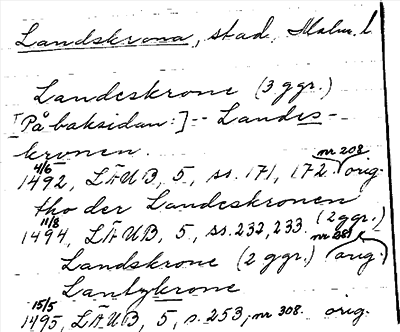 Landskrona, stad, Malm. l
Landeskrone (3 ggr.)
[På baksidan:] -- Landes-
kronen.
4/6 1492, LÄUB, 5, ss. 171, 172. nr 208 orig.
tho der Landeskronen
11/8 1494, LÄUB, 5, ss. 232, 233. (2 ggr.) orig.
Landskrone (2 ggr.)
Lantzkrone
15/5 1495, LÄUB, 5, s. 253, nr 308. orig.